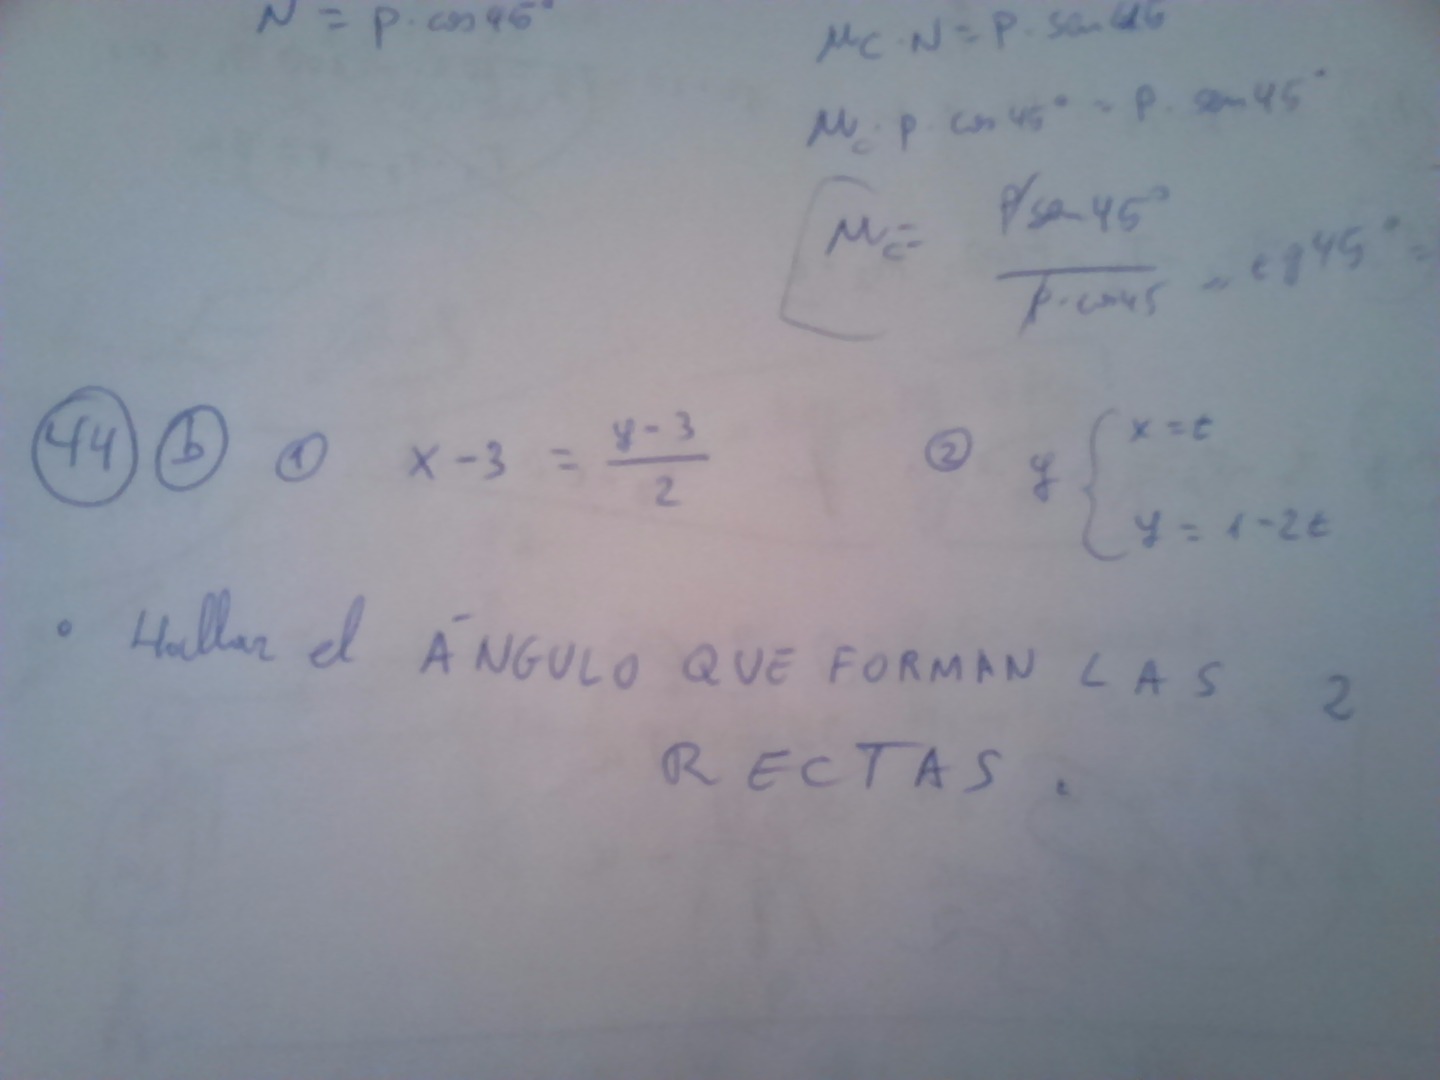 N = p·cos45°
μc·N = P·sen45
μc·p·cos45° = p·sen45°
μc = p sen45° / p·cos45 = tg45° =
44 b 1 x-3 = y-3 / 2
2 y { x = t
y = 1-2t
• Hallar el ÁNGULO QUE FORMAN LAS 2
RECTAS.